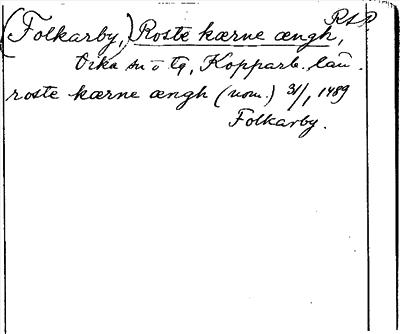 RSP.
(Folkarby,) Roste kærne ængh,
Vika sn o tg, Kopparb. län.
roste kærne ængh (nom.) 31/1 1489
Folkarby.